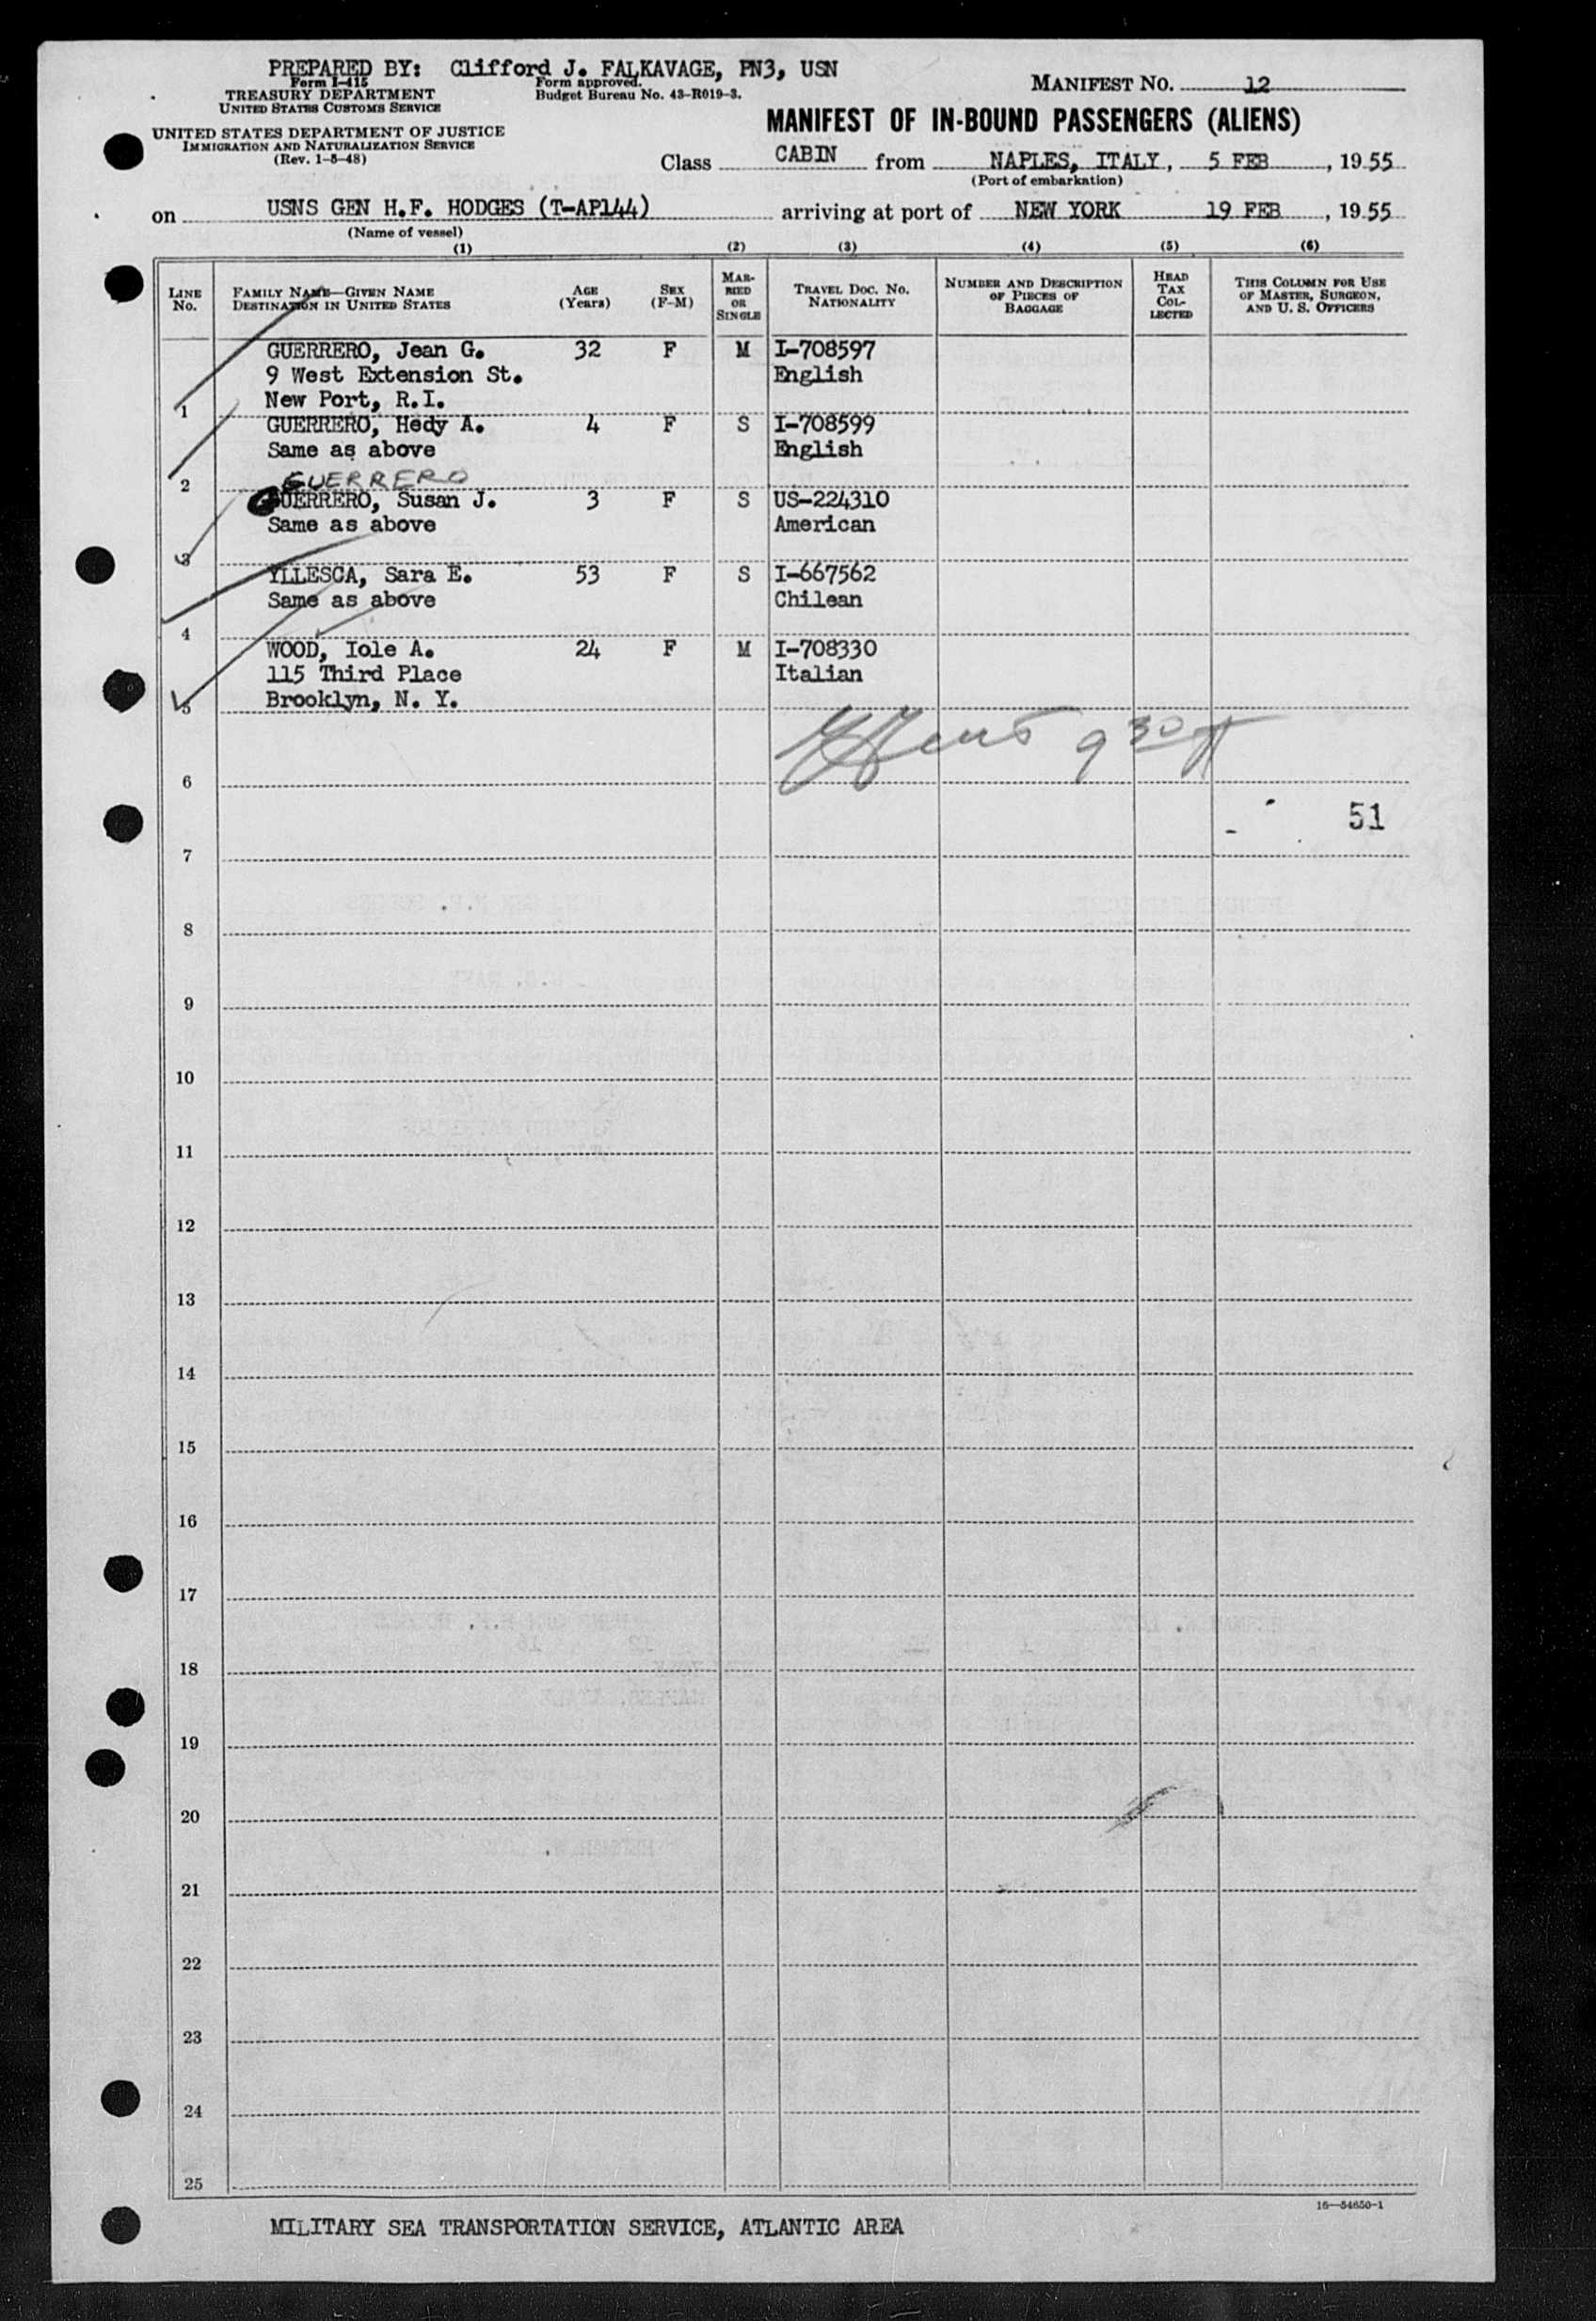 PREPARED BY: Clifford J. FALKAVAGE, PN3, USN
Form I-415
TREASURY DEPARTMENT
UNITED STATES CUSTOMS SERVICE
Form approved.
Budget Bureau No. 43-R019-3.
MANIFEST NO. 12
UNITED STATES DEPARTMENT OF JUSTICE
IMMIGRATION AND NATURALIZATION SERVICE
(Rev. 1-5-48)
MANIFEST OF IN-BOUND PASSENGERS (ALIENS)
Class CABIN from NAPLES, ITALY, 5 FEB, 1955
(Port of embarkation)
on USNS GEN H.F. HODGES (T-AP144) arriving at port of NEW YORK 19 FEB, 1955
(Name of vessel)
(1) (2) (3) (4) (5) (6)
LINE No.
FAMILY NAME—GIVEN NAME
DESTINATION IN UNITED STATES
AGE (Years)
SEX (F-M)
MARRIED OR SINGLE
TRAVEL DOC. NO.
NATIONALITY
NUMBER AND DESCRIPTION OF PIECES OF BAGGAGE
HEAD TAX COLLECTED
THIS COLUMN FOR USE OF MASTER, SURGEON, AND U. S. OFFICERS
GUERRERO, Jean G. 32 F M I-708597
9 West Extension St. English
1 New Port, R.I.
GUERRERO, Hedy A. 4 F S I-708599
Same as above English
2 GUERRERO
GUERRERO, Susan J. 3 F S US-224310
Same as above American
3
YLLESCA, Sara E. 53 F S I-667562
Same as above Chilean
4
WOOD, Iole A. 24 F M I-708330
115 Third Place Italian
5 Brooklyn, N. Y.
9 30
6
51
7
8
9
10
11
12
13
14
15
16
17
18
19
20
21
22
23
24
25
16—54650-1
MILITARY SEA TRANSPORTATION SERVICE, ATLANTIC AREA